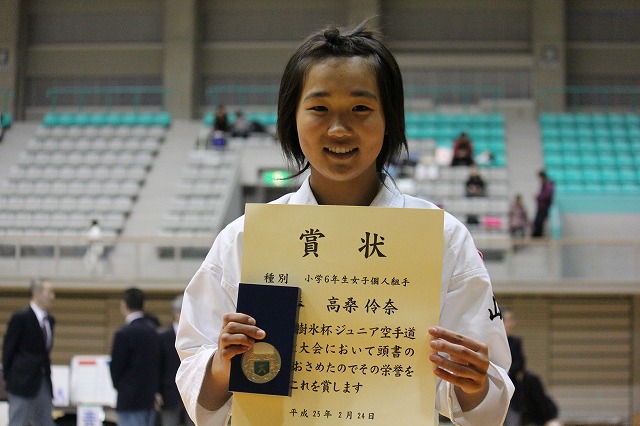 賞状
種別 小学6年生女子個人組手
高桑伶奈
樹氷杯ジュニア空手道
大会において頭書の
おさめたのでその栄誉を
これを賞します
平成25年2月24日
山